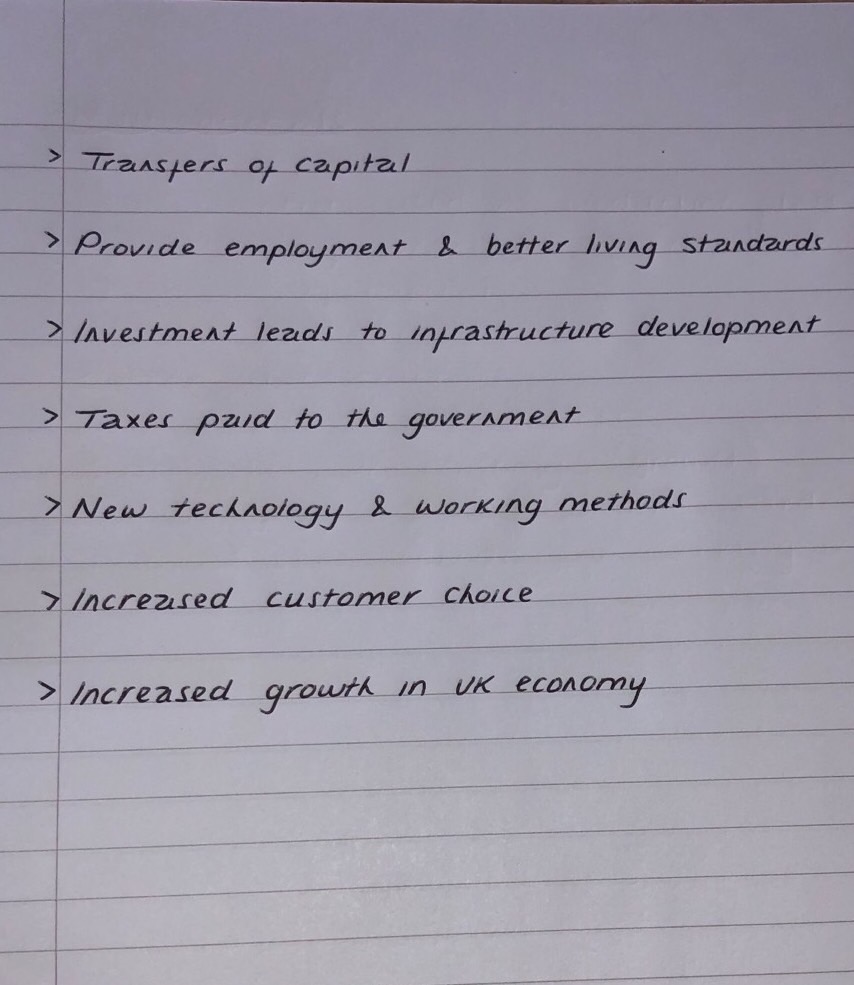 > Transfers of capital
> Provide employment & better living standards
> Investment leads to infrastructure development
> Taxes paid to the government
> New technology & working methods
> Increased customer choice
> Increased growth in UK economy